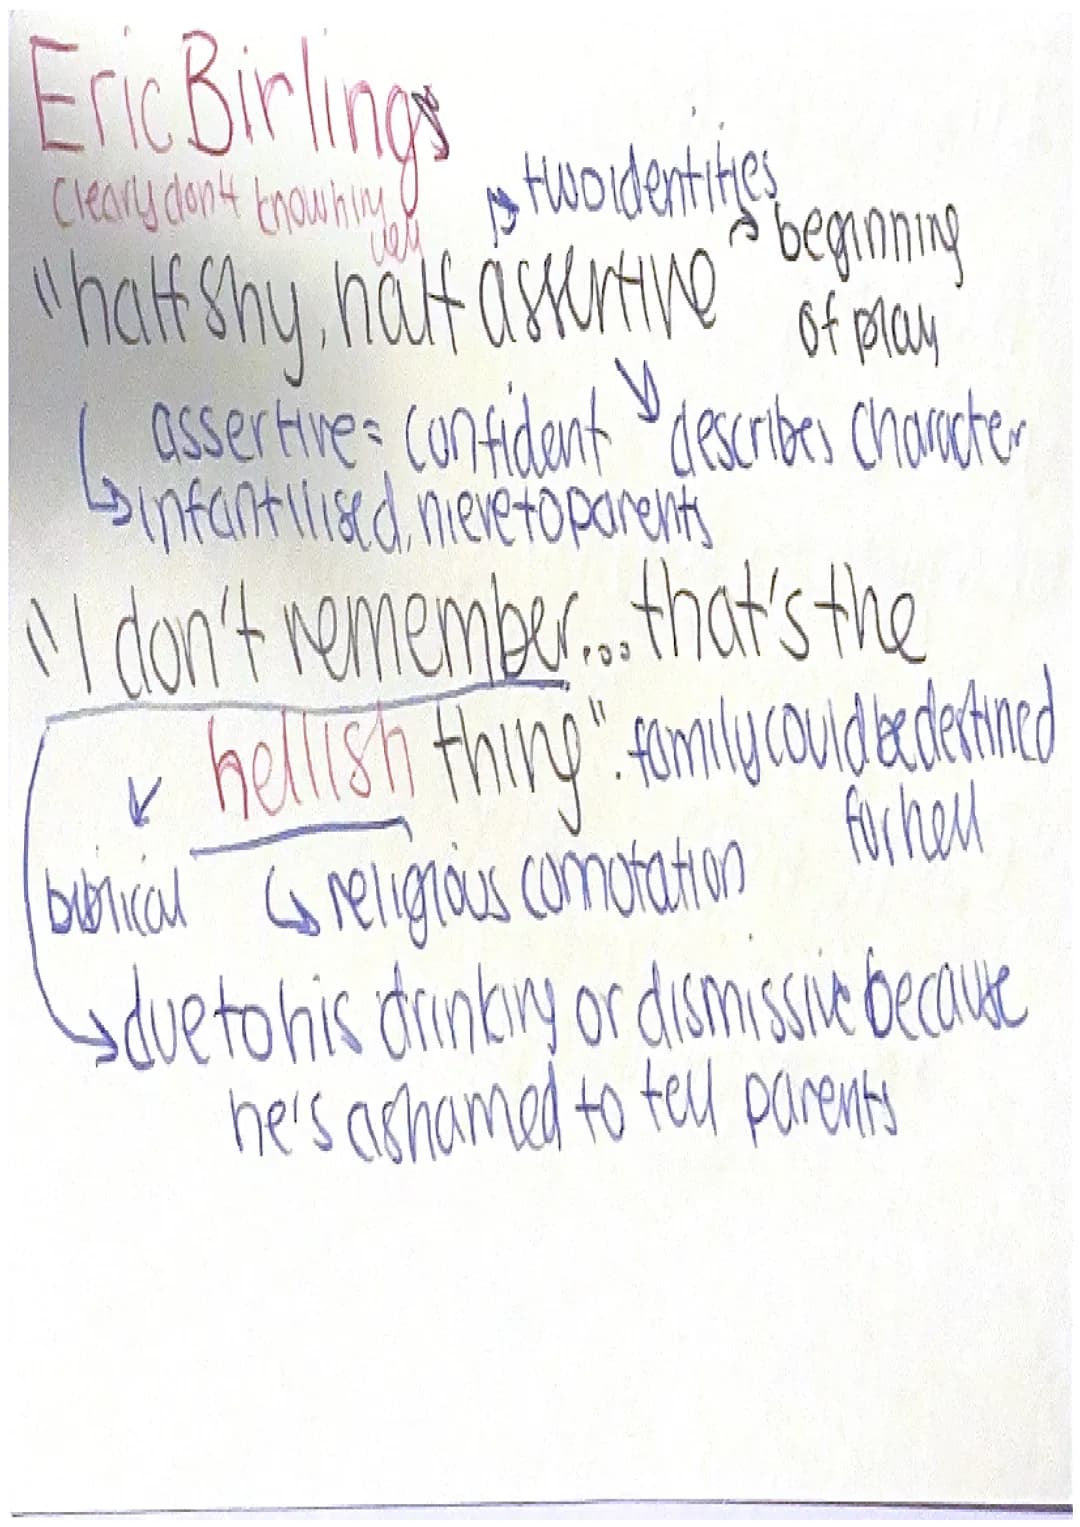 Eric Birlings
Clearly don't know him
well
→ two identities
→ beginning
of play
"half shy, half assertive
assertive = confident
describes character
↳ infantilised, nieve to parents
"I don't remember... that's the
hellish thing". family could be destined
for hell
biblical
↳ religious connotation
→ due to his drinking or dismissive because
he's ashamed to tell parents